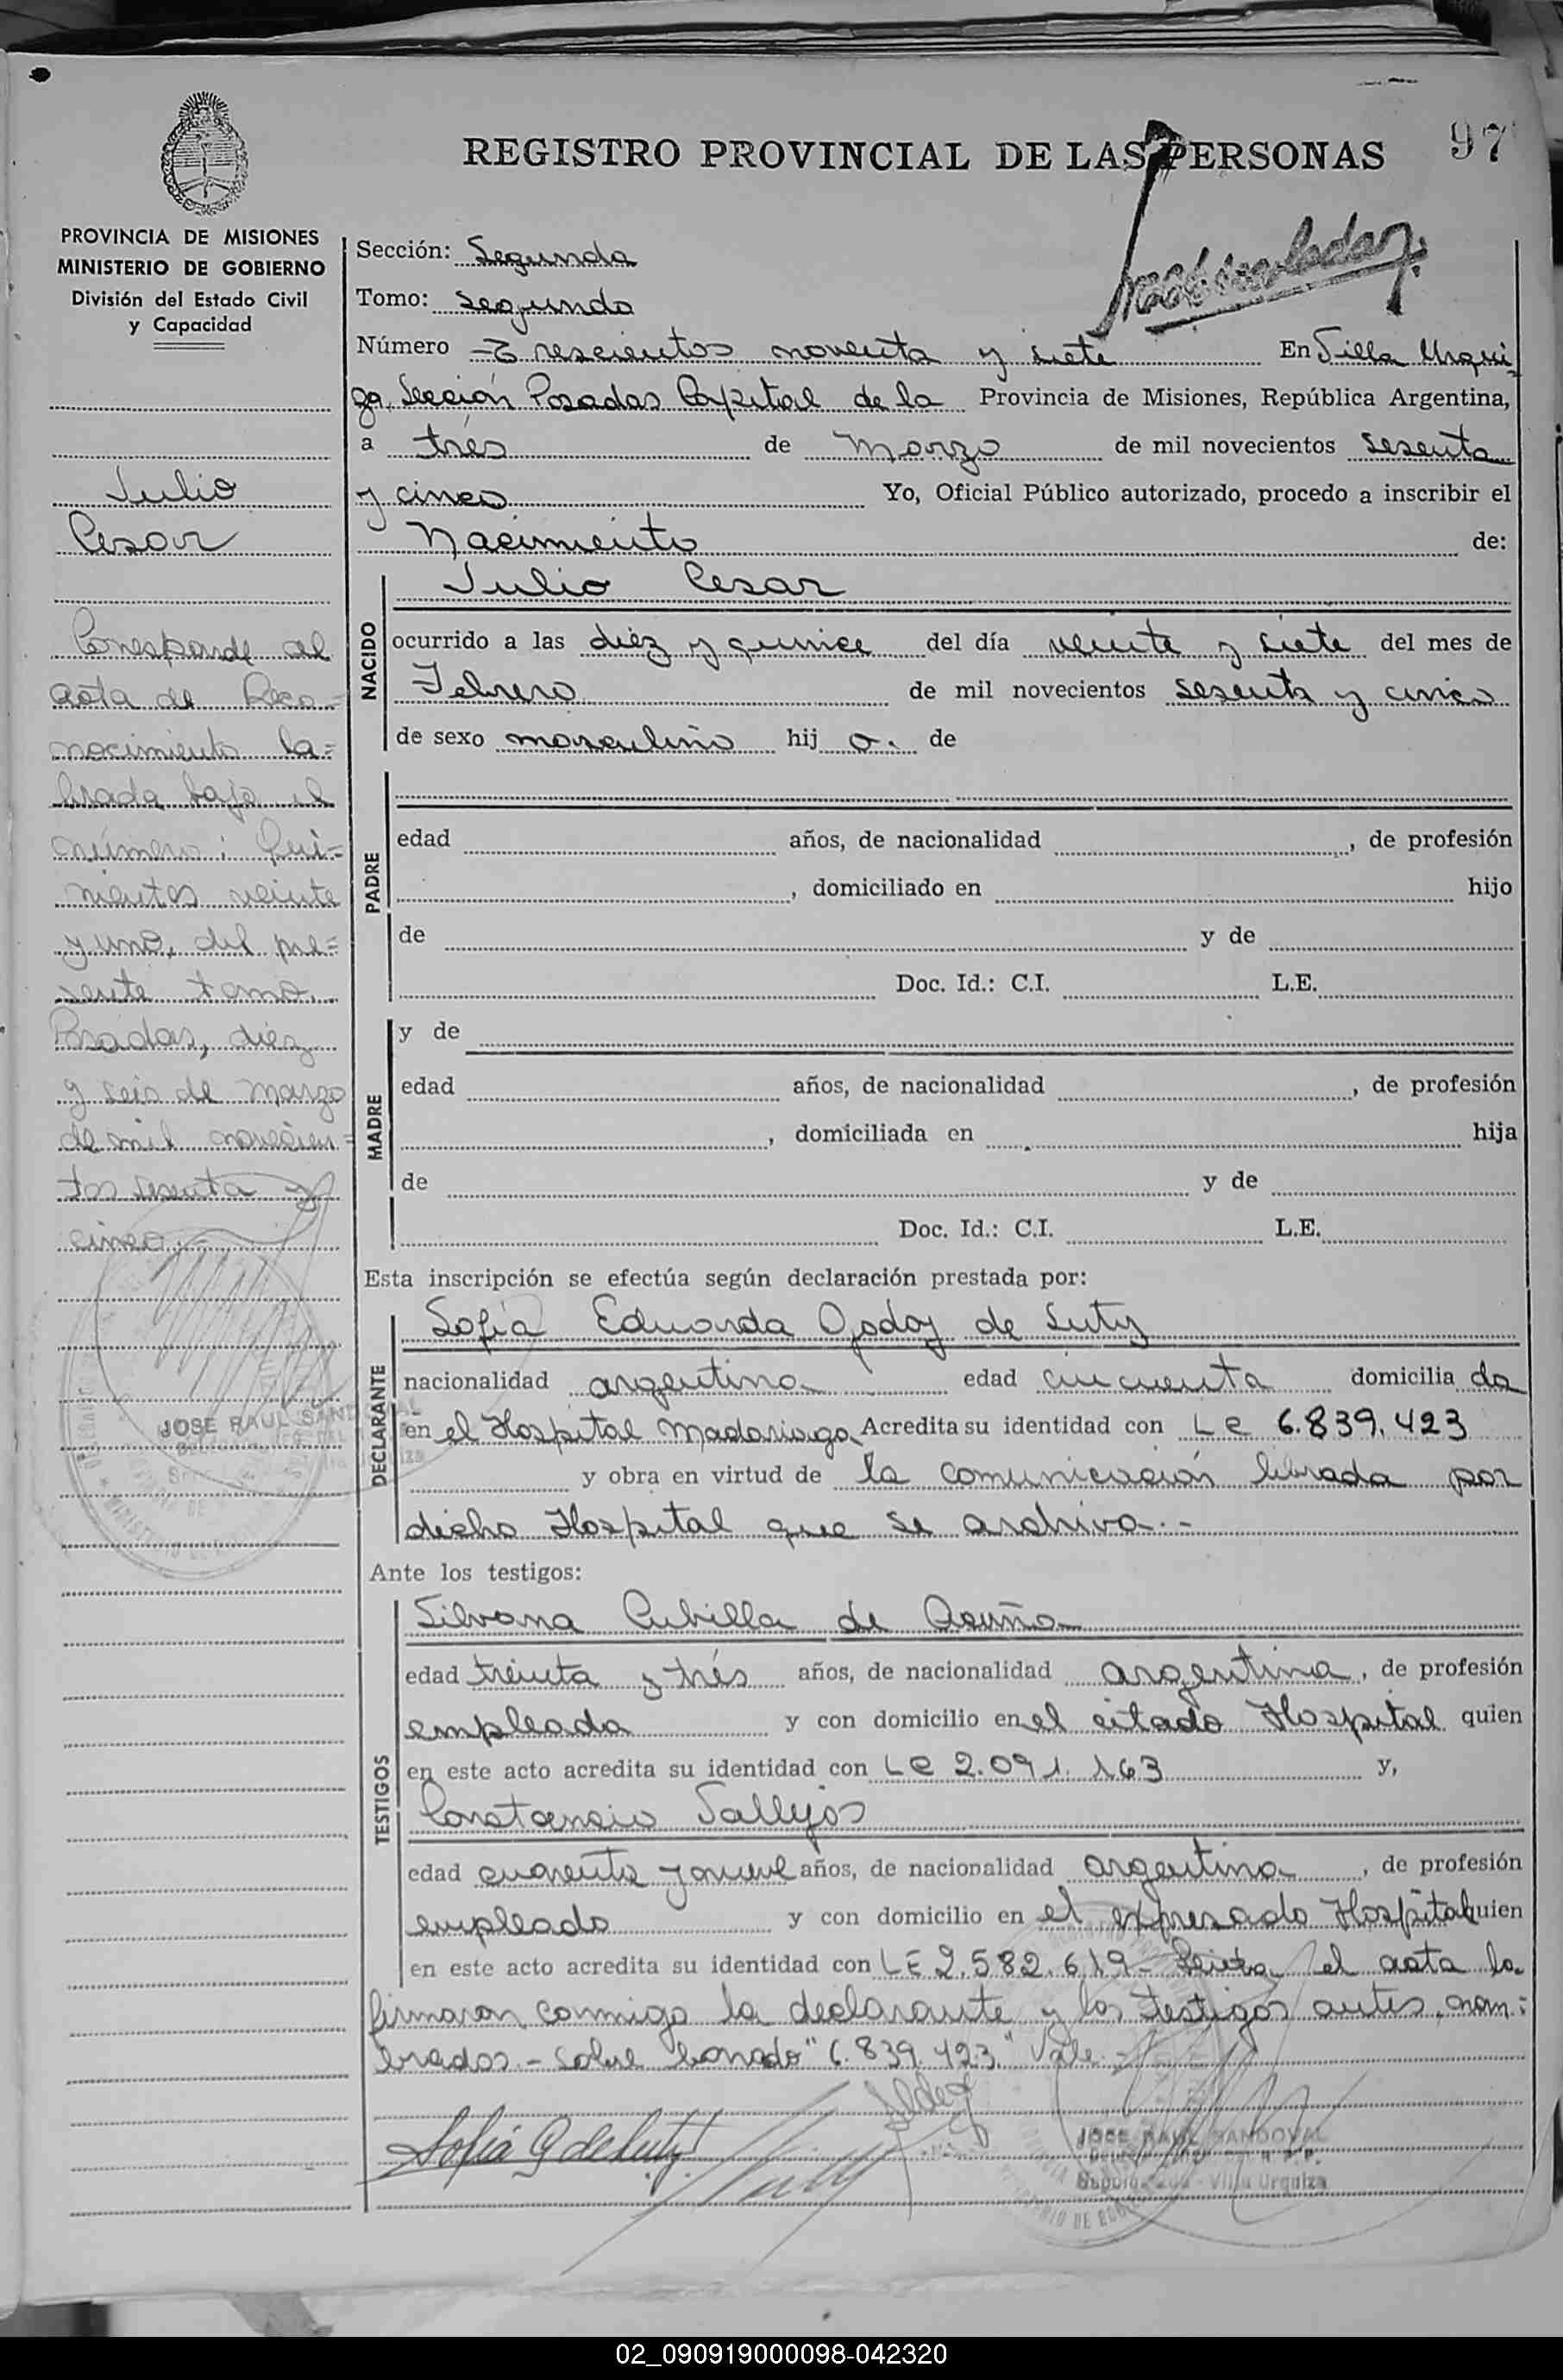 REGISTRO PROVINCIAL DE LAS PERSONAS
97
PROVINCIA DE MISIONES
MINISTERIO DE GOBIERNO
División del Estado Civil
y Capacidad
Julio
Cesar
Corresponde al
acta de Reco=
nocimiento la=
brada bajo el
número: Qui=
nientos veinte
y uno, del pre=
sente tomo.
Posadas, diez
y seis de marzo
de mil novecien=
tos sesenta y
cinco.-
JOSE RAUL SAND
Sección: Segunda
Tomo: Segundo
Número Trescientos noventa y siete En Villa Urqui=
za, Sección Posadas Capital de la Provincia de Misiones, República Argentina,
a trés de Marzo de mil novecientos sesenta
y cinco Yo, Oficial Público autorizado, procedo a inscribir el
Nacimiento de:
NACIDO
Julio Cesar
ocurrido a las diéz y quince del día veinte y siete del mes de
Febrero de mil novecientos sesenta y cinco
de sexo masculino hij o. de
PADRE
edad años, de nacionalidad , de profesión
, domiciliado en hijo
de y de
Doc. Id.: C.I. L.E.
MADRE
y de
edad años, de nacionalidad , de profesión
, domiciliada en hija
de y de
Doc. Id.: C.I. L.E.
Esta inscripción se efectúa según declaración prestada por:
DECLARANTE
Sofía Eduarda Godoy de Luty
nacionalidad argentina edad cincuenta domicilia da
en el Hospital Madariaga Acredita su identidad con L e 6.839.423
y obra en virtud de la comunicación librada por
dicho Hospital que se archiva.-
Ante los testigos:
TESTIGOS
Silvana Cubilla de Acuña
edad treinta y trés años, de nacionalidad argentina, de profesión
empleada y con domicilio en el citado Hospital quien
en este acto acredita su identidad con L e 2.091.163 y,
Constancio Vallejos
edad cuarenta y nueve años, de nacionalidad argentina, de profesión
empleado y con domicilio en el expresado Hospital quien
en este acto acredita su identidad con L E 2.582.619- Leida el acta la
firmaron conmigo la declarante y los testigos antes nom=
brados.- Sobre borrado "6.839.423" Vale.-
Sofía G de Luty
JOSE RAUL SANDOVAL
Villa Urquiza
02_090919000098-042320